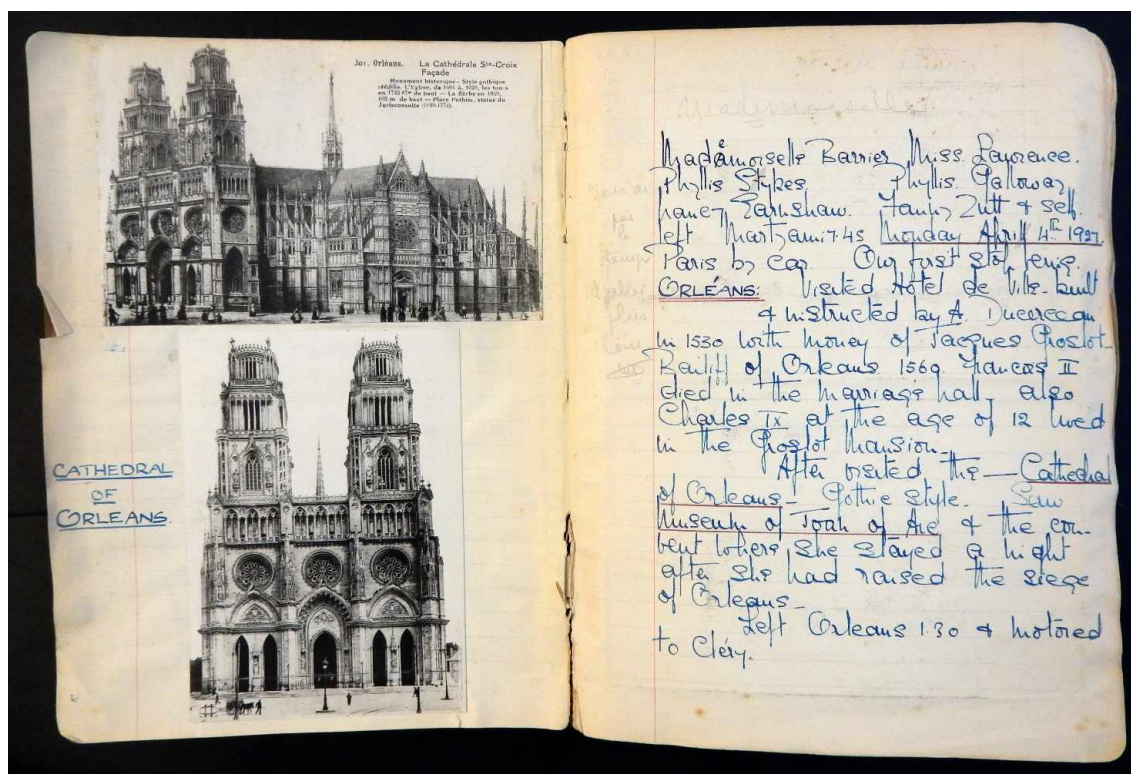 301. Orléans. La Cathédrale Ste-Croix
Façade
Monument historique - Style gothique
réédifié. L'Eglise, de 1601 à 1829, les tours
en 1723 87m de haut - La flèche en 1859,
102 m. de haut - Place Pothier, statue du
Jurisconsulte (1699-1772).
CATHEDRAL
OF
ORLEANS.
Mademoiselle
Mademoiselle Barrier, Miss Lawrence.
Phyllis Stykes Phyllis Galloway
Earnshaw. Zutt & self.
left 7.45 Monday April 4th 1927.
Paris by car. Our first stop being
ORLÉANS: Visited Hôtel de Ville - built
& instructed by A. Ducerceau
in 1530 with money of Jacques Groslot
Bailiff of Orleans 1569. Francois II
died in the marriage hall - also
Charles IX at the age of 12 lived
in the Groslot Mansion -
After visited the - Cathedral
of Orleans - Gothic style. Saw
Museum of Joan of Arc & the con-
vent where she stayed a night
after she had raised the siege
of Orleans -
Left Orleans 1.30 & motored
to Cléry.